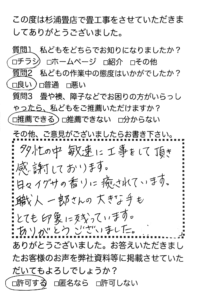 この度は杉浦畳店で畳工事をさせていただきま
してありがとうございました。
質問1 私どもをどちらでお知りになりましたか？
□チラシ □ホームページ □紹介 □その他
質問2 私どもの作業中の態度はいかがでしたか？
□良い □普通 □悪い
質問3 畳や襖、障子などでお困りの方がいらっし
ゃったら、私どもをご推薦いただけますか？
□推薦できる □推薦できない □分からない
その他、ご意見がございましたらお書き下さい。
多忙の中 敏速に工事をして頂き
感謝しております。
日々イグサの香りに癒されています。
職人一郎さんの大きな手も
とても印象に残っています。
ありがとうございました。
ありがとうございました。お答えいただきまし
たお客様のお声を弊社資料等に掲載させていた
だいてもよろしでしょうか？
□許可する □匿名なら □許可しない